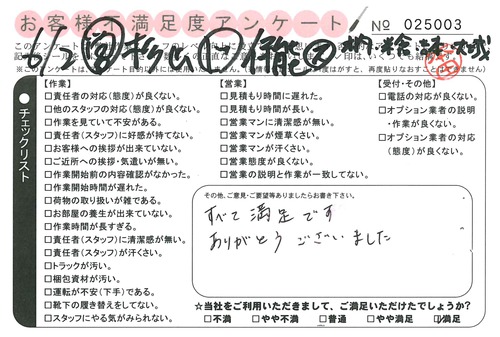 お客様不満足度アンケート
No 025003
チェックリスト
【作業】
□責任者の対応(態度)が良くない。
□他のスタッフの対応(態度)が良くない。
□作業を見ていて不安がある。
□責任者(スタッフ)に好感が持てない。
□お客様への挨拶が出来ていない。
□ご近所への挨拶・気遣いが無い。
□作業開始前の内容確認がなかった。
□作業開始時間が遅れた。
□荷物の取り扱いが雑である。
□お部屋の養生が出来ていない。
□作業時間が長すぎる。
□責任者(スタッフ)に清潔感が無い。
□責任者(スタッフ)が汗くさい。
□トラックが汚い。
□梱包資材が汚い。
□運転が不安(下手)である。
□靴下の履き替えをしてない。
□スタッフにやる気がみられない。
【営業】
□見積もり時間に遅れた。
□見積もり時間が長い。
□営業マンに清潔感が無い。
□営業マンが煙草くさい。
□営業マンが汗くさい。
□営業態度が良くない。
□営業の説明と作業が一致してない。
【受付・その他】
□電話の対応が良くない。
□オプション業者の説明
・作業が良くない。
□オプション業者の対応
(態度)が良くない。
その他、ご意見・ご要望等ありましたらお書き下さい。
すべて満足です
ありがとうございました
☆当社をご利用いただきまして、ご満足いただけたでしょうか?
□不満 □やや不満 □普通 □やや満足 □満足